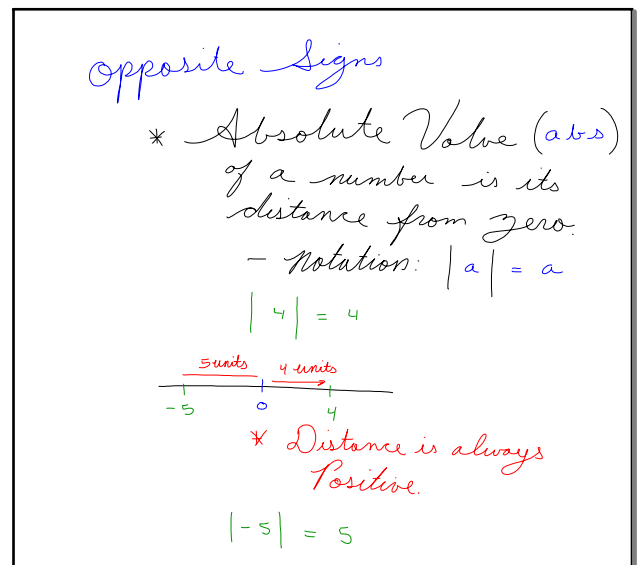 opposite Signs
* Absolute Value (abs)
of a number is its
distance from zero.
- notation: |a| = a
|4| = 4
5 units 4 units
-5 0 4
* Distance is always
Positive.
|-5| = 5